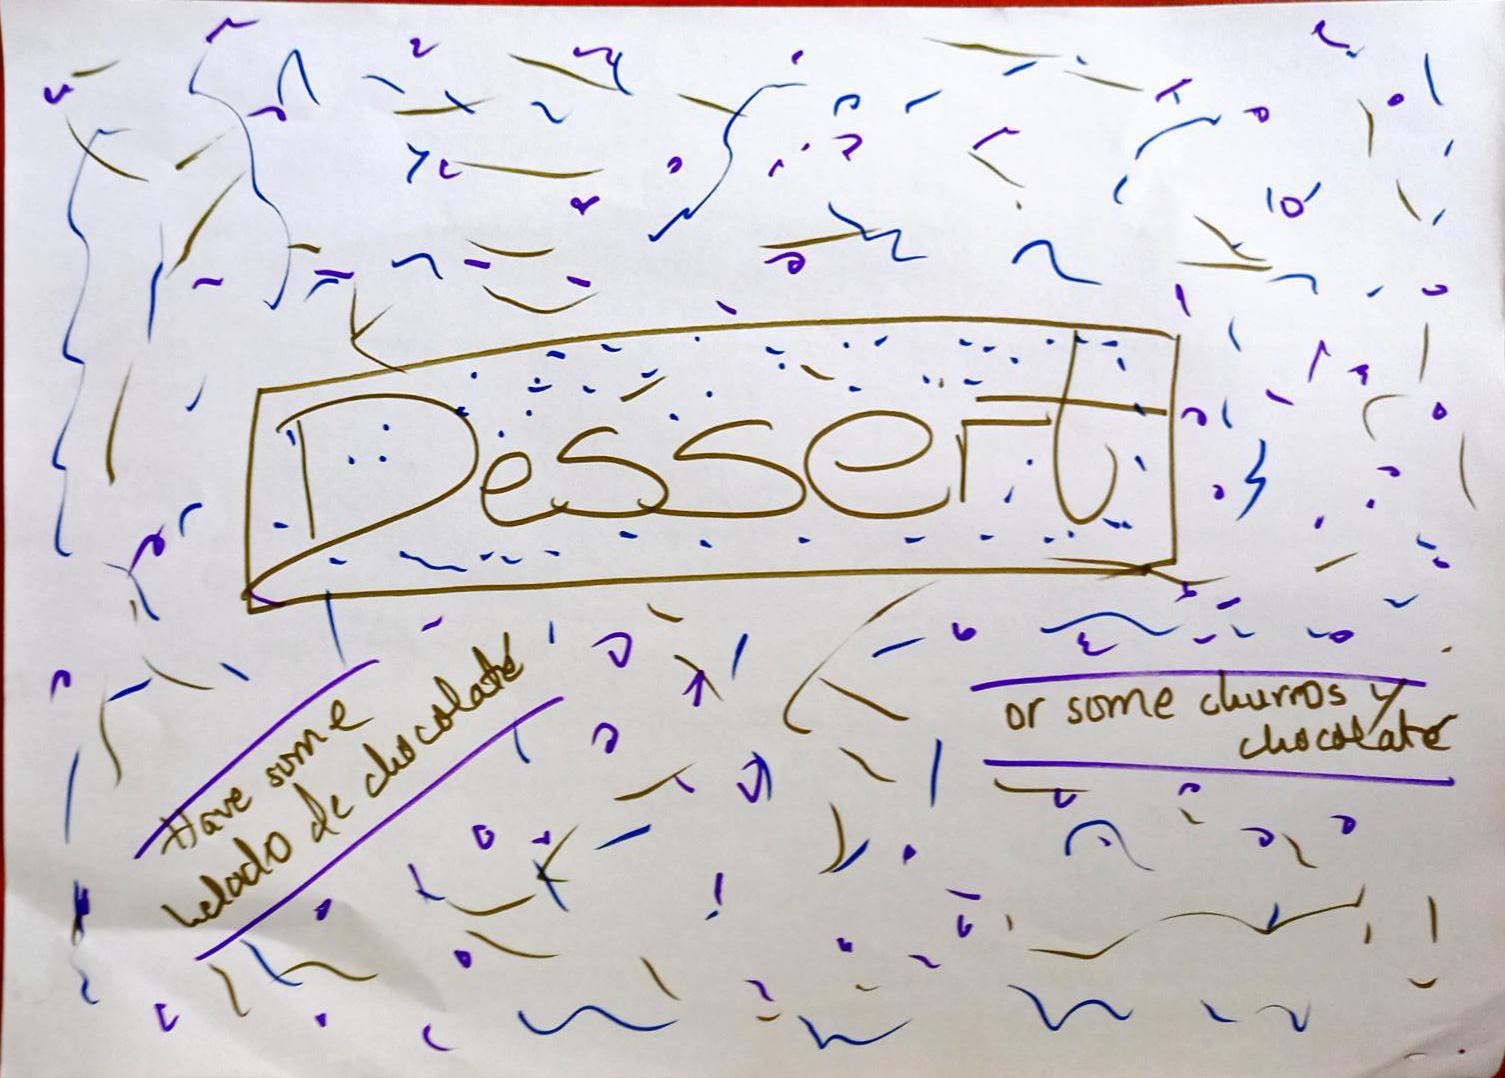 Dessert
Have some
helado de chocolate
or some churros y
chocolate